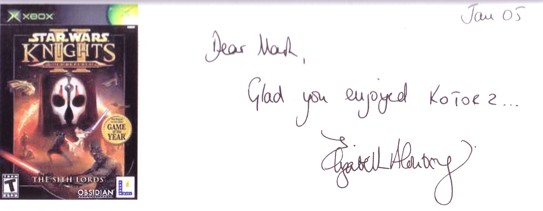 XBOX
STAR WARS
KNIGHTS
II
GAME
OF THE
YEAR
THE SITH LORDS
T
OBSIDIAN
Jan 05
Dear Mark,
Glad you enjoyed KOTOR 2...